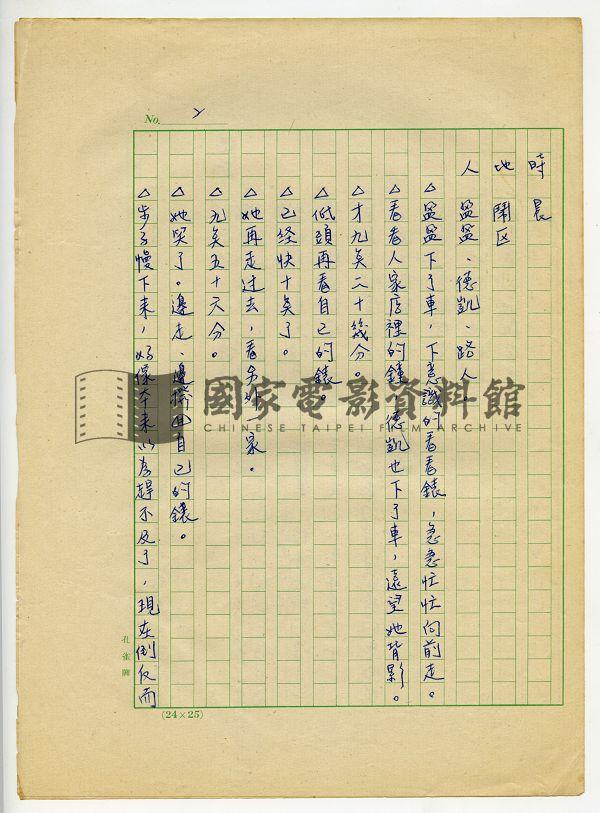 No. 2
時 晨
地 鬧区
人 盈盈、德凱、路人。
△盈盈下了車，下意識的看看錶，急急忙忙向前走。
△看看人家店裡的鐘，德凱也下了車，遠望她背影。
△才九點二十幾分。
△低頭再看自己的錶。
△已經快十點了。
△她再走过去，看另外一家。
△九點五十六分。
△她哭了。邊走、邊撥回自己的錶。
△步子慢下來，好像本來以為趕不及了，現在倒反而
孔雀牌
(24×25)
國家電影資料館
CHINESE TAIPEI FILM ARCHIVE